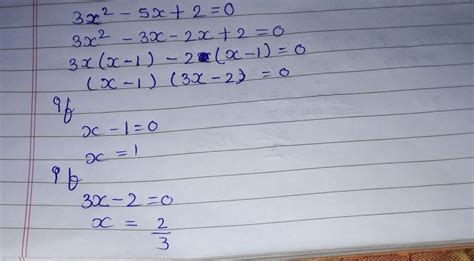 3x² - 5x + 2 = 0
3x² - 3x - 2x + 2 = 0
3x(x-1) - 2(x-1) = 0
(x-1) (3x-2) = 0
If
x - 1 = 0
x = 1
If
3x - 2 = 0
x = 2/3